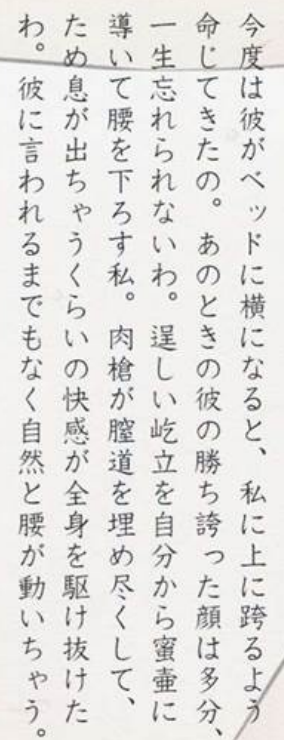 今度は彼がベッドに横になると、私に上に跨るよう
命じてきたの。あのときの彼の勝ち誇った顔は多分、
一生忘れられないわ。逞しい屹立を自分から蜜壷に
導いて腰を下ろす私。肉槍が膣道を埋め尽くして、
ため息が出ちゃうくらいの快感が全身を駆け抜けた
わ。彼に言われるまでもなく自然と腰が動いちゃう。